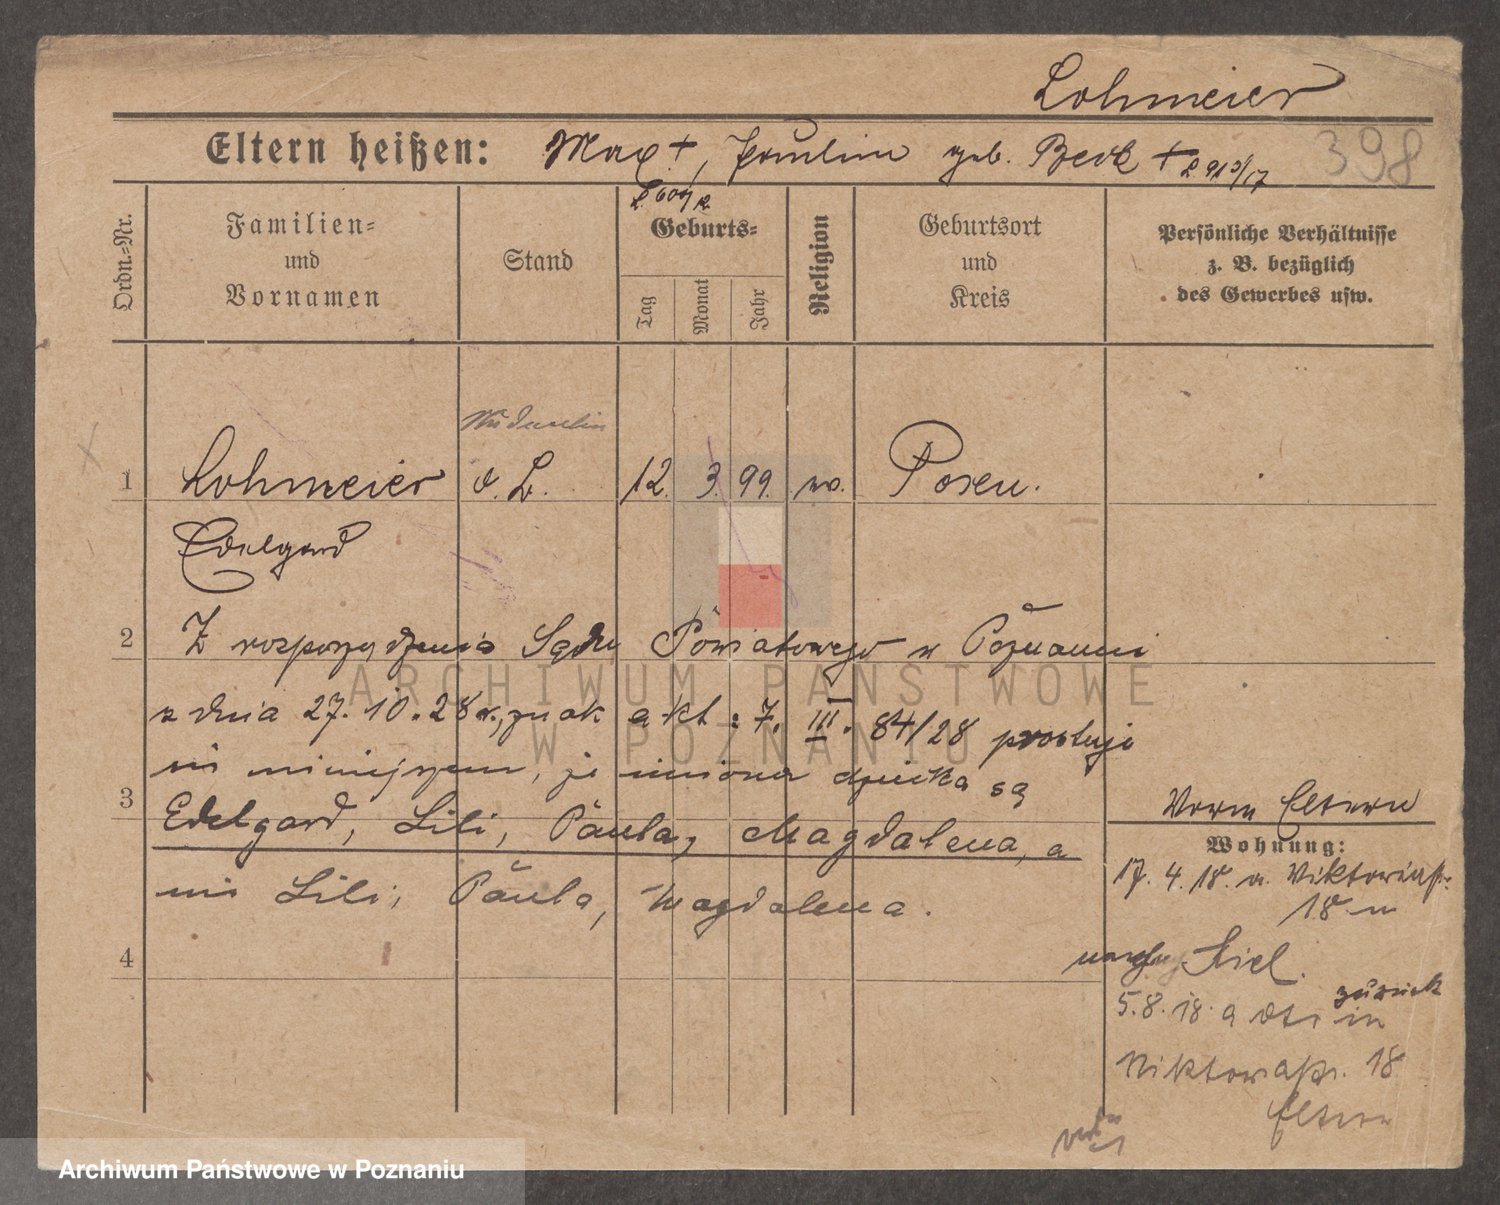 Lohmeier
Eltern heißen: Max +, Pauline geb. Beck +
398
Ordn.=Nr.
Familien=
und
Vornamen
Stand
Geburts=
Tag
Monat
Jahr
Religion
Geburtsort
und
Kreis
Persönliche Verhältnisse
z. B. bezüglich
des Gewerbes usw.
1 Lohmeier o. B. 12. 3. 99. w. Posen.
Edelgard
2 Z rozporządzenia Sądu Powiatowego w Poznaniu
z dnia 27.10.28 r., znak akt: 7. III. 84/28 prostuje
się niniejszem, że imiona dziecka są
3
Edelgard, Lili, Paula, Magdalena, a
nie Lili, Paula, Magdalena.
4
Eltern
Wohnung:
17. 4. 18. a. Viktoriastr.
18
Kiel.
5.8.18. a zurück
in
Viktoriastr. 18
Eltern
ARCHIWUM PAŃSTWOWE
W POZNANIU
Archiwum Państwowe w Poznaniu